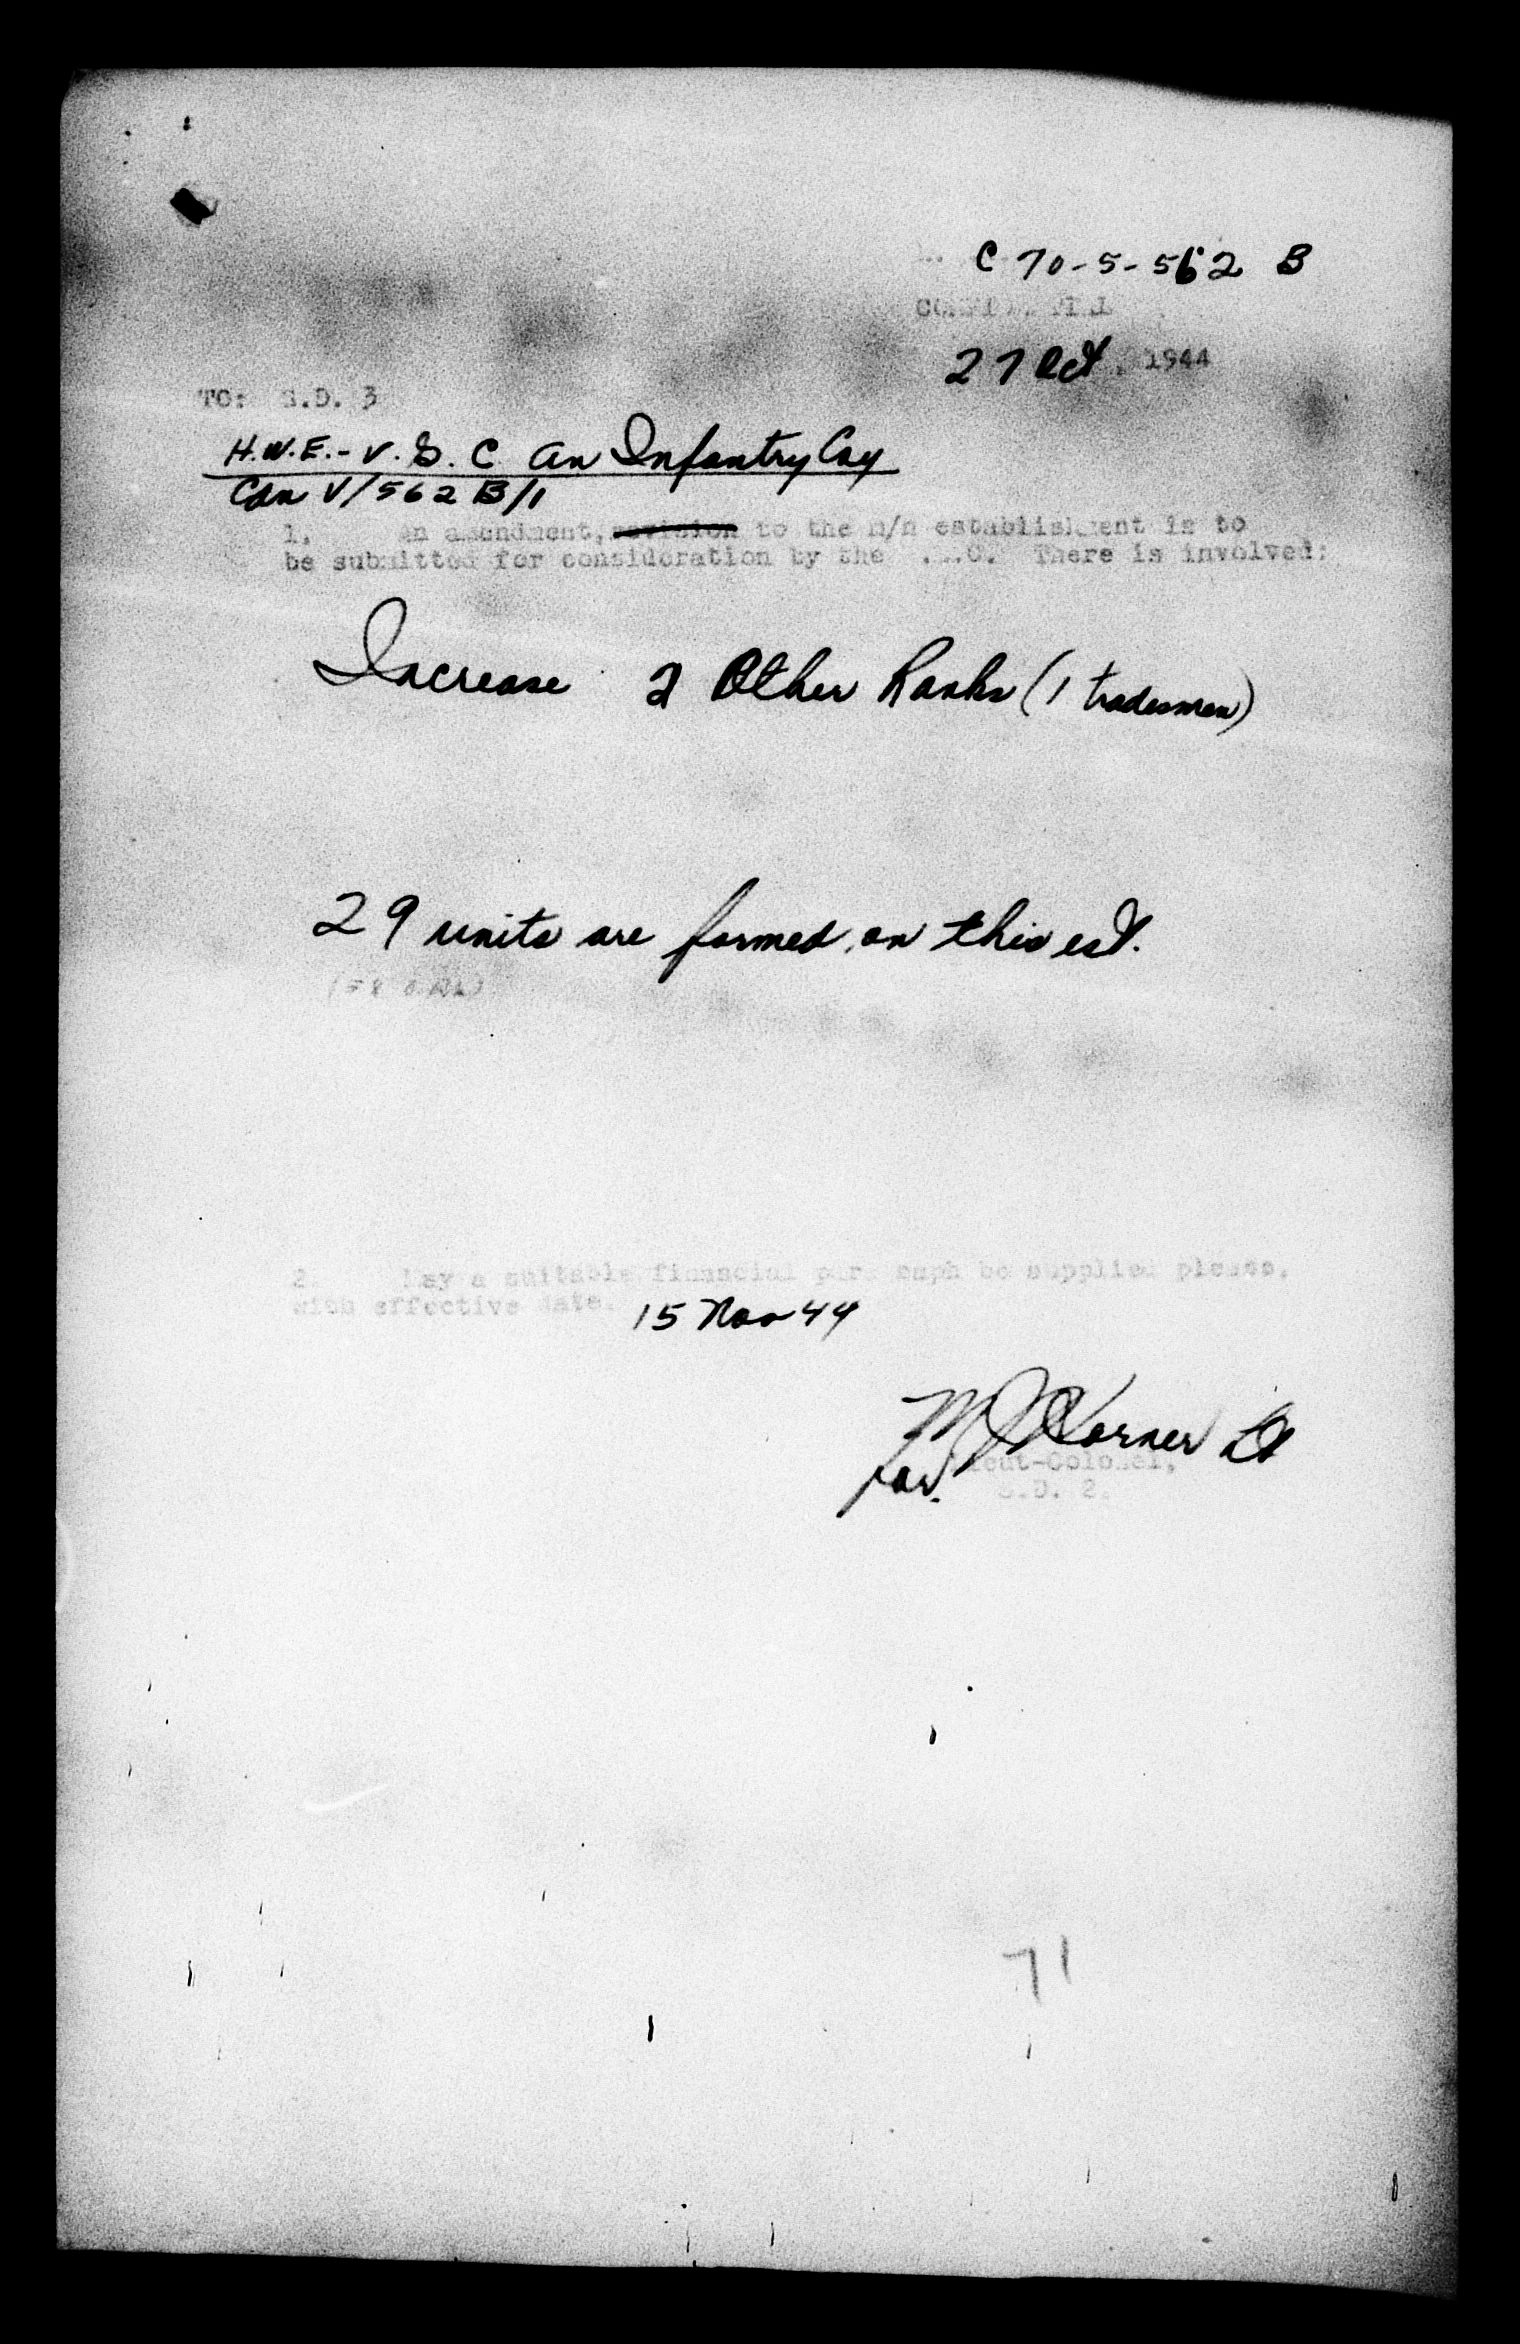 C 70-5-562 B
27 Oct. 1944
TO: S.D. 3
H.W.E.-V.G.C an Infantry Coy
Cdn V/562 B/1
1. An amendment, revision to the m/n establishment is to
be submitted for consideration by the There is involved:
Increase 2 Other Ranks (1 tradesman)
29 units are formed on this est.
2. May a suitable financial paragraph be supplied please,
with effective date. 15 Nov 44
Lt
for Lieut-Colonel,
S.D. 2.
71